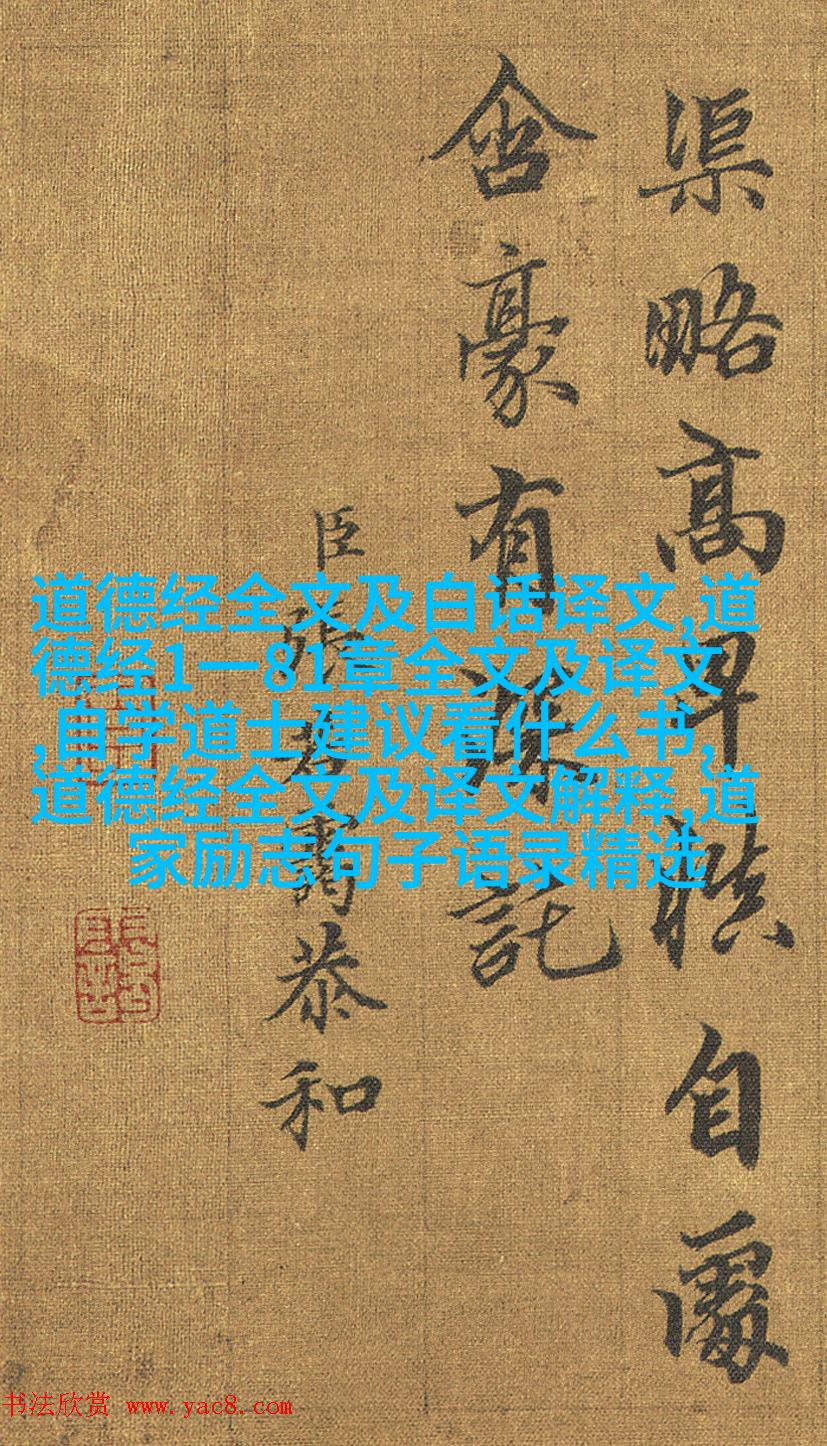 渠略高卑自處
含豪有託
臣張若靄恭和
道德经全文及白话译文,道
德经1一81章全文及译文
,自学道士建议看什么书,
道德经全文及译文解释,道
家励志句子语录精选
书法欣赏 www.yac8.com